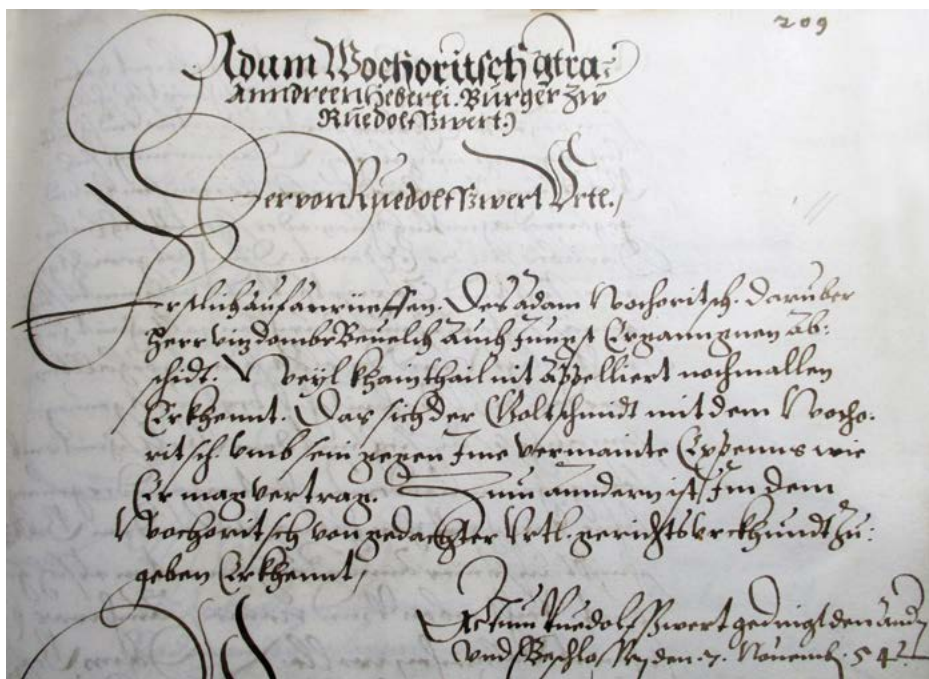 209
Adam Wochoritsch ctra:
Anndreen Heberli. Burger zw
Ruedolffswert.)
Der von Ruedolffswert Vrtl./
Erstlich auf anrüeffen. Des Adam Wochoritsch. Daruber
Herr vizdombs Beuelch auch Jungst Erganngnen Ab:
schidt. Weyl khain thail nit äppelliert nochmallen
Erkhennt. Das sich der Goltschmidt mit dem Wocho:
ritsch. vmb sein gegen Ime vermainte Expenns wie
Er mag vertrag. Zum anndern ist Im dem
Wochoritsch von gedachter Vrtl. gerichtsvrkhundt zu:
geben Erkhennt/
Actum Ruedolffswert den
vnd Beschlossen den 7. Nouemb. 54